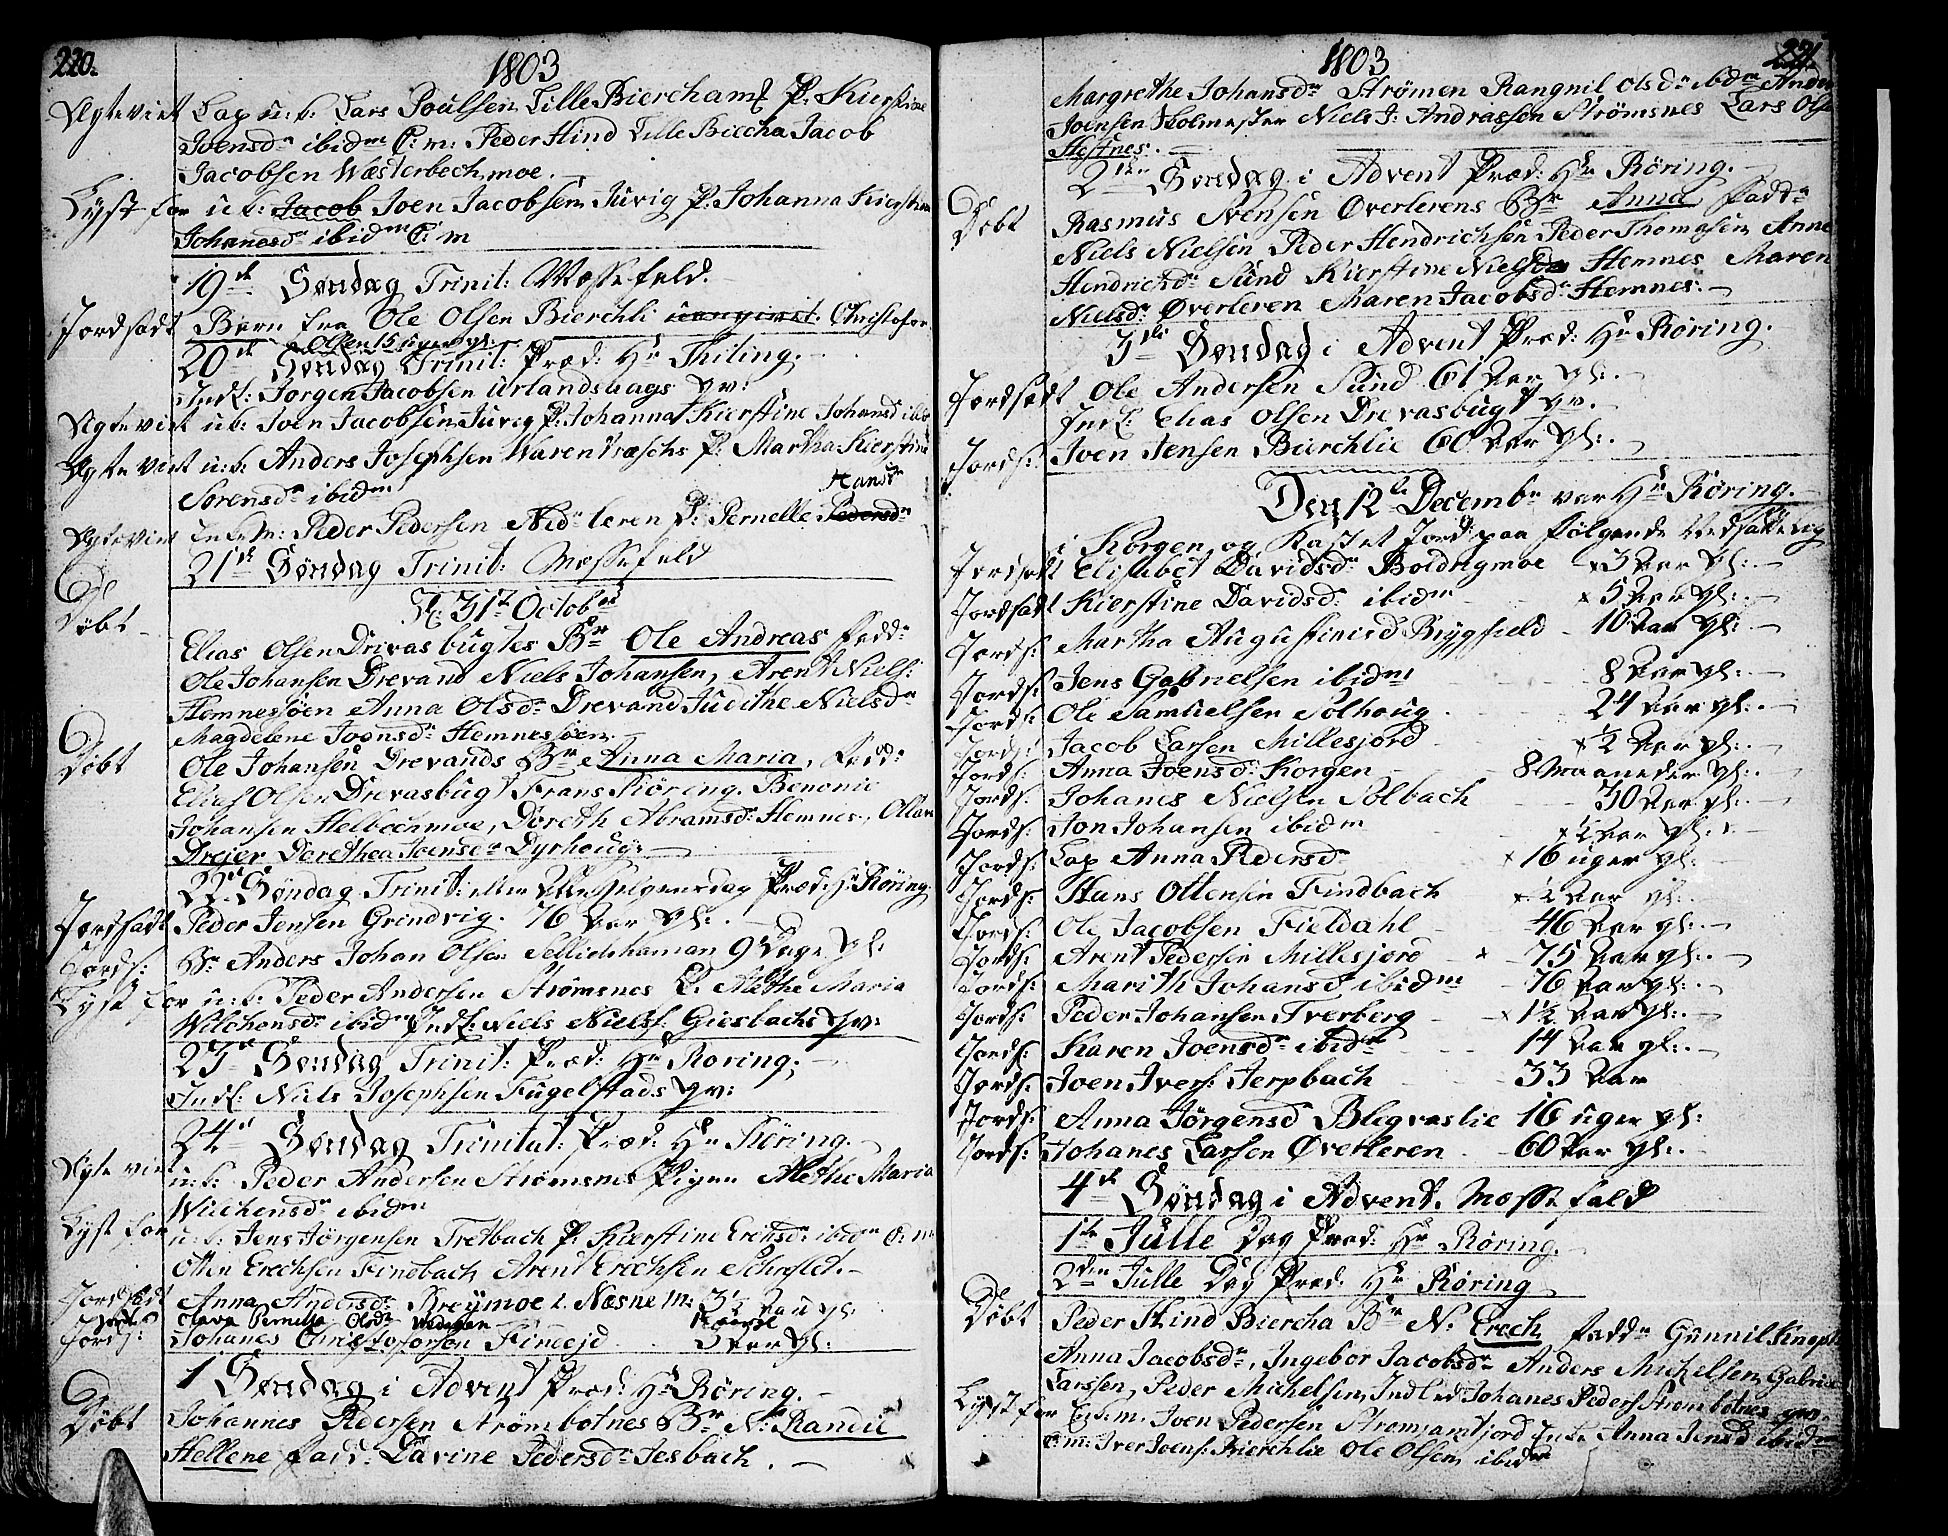 220.
1803
Ægteviet Lap u: k: Lars Poulsen Lille Bierchamf P: Kierstine
Joensdr ibidm C: m: Peder Hind Lille Biercha Jacob
Jacobsen Wæsterbechmoe.
Lyst for u: k: Jacob Joen Jacobsen Juvig P: Johanna Kierstina
Johanesdr ibidm C: m
19de Søndag Trinit: Messefald.
Jordfæst Barn fra Ole Olsen Bierchli Christofer
Olsen 15 uger gl:
20de Søndag Trinit: Præd: Hr Thiling.
Indl: Jorgen Jacobsen Urlandshags qv:
Ægteviet u: k: Joen Jacobsen Juvig P: Johanna Kierstine Johansd ibidm
Ægteviet u: k: Anders Josephsen Warentræschs P: Martha Kierstine
Sorensdr ibidm
Hansdr
Ægteviet Enkem: Peder Pedersen Nedr leren P: Pernelle Pedersdr
21de Søndag Trinit: Messefald
D: 31te Octobr
Døbt
Elias Olsen Drivasbugtes Br Ole Andreas Faddr
Ole Johansen Drevand Niels Johansen, Arent Niels:
Hemnessøen Anna Olsdr Drevand Judithe Nielsdr
Magdelene Joensdr Hemnessøen.
Døbt Ole Johansen Drevands Br Anna Maria, Fadd:
Elias Olsen Drevasbugt Frans Røring. Benonie
Johansen Helbechmoe, Doreth Abramsdr Hemnes, Ollan
Drejer Dorethea Joensdr Dyrhoug.
22de Søndag Trinit: eller Allehelgensdag Præd: Hr Røring.
Jordfæst Peder Jensen Grindvig. 76 Aar gl:
Jordf: Br Anders Johan Olsen 9 Dage gl:
Lyst for u: k: Peder Andersen Strømsnes P. Methe Maria
Wilchensdr ibidm Indl: Niels Niels: Giesbachs qv:
23de Søndag Trinit: Præd: Hr Roring.
Indl: Niels Josephsen Fugelstads qv:
24de Søndag Trinitat: Præd: Hr Røring.
Ægteviet u: k: Peder Andersen Strømsnes Pigen Methe Maria
Wilchensdr ibidm
Lyst for u: k: Jens Jørgensen Tretbach P. Kierstine Erichsdr ibidm C: m
Otter Erechsen Findbach Arent Erichsen
Jordfæst Anna Andersdr Breymoe i Næsne M: 3½ Aar gl:
Jordf: Clara Pernille Olsdr
Jordf: Johanes Christofersen Finejd 3 Aar gl:
1 Søndag i Advent Præd: Hr Røring.
Døbt Johannes Pedersen Strømbotnes Br N. Randie
Hellene Fadd: Lavine Pedersdr Jesbach.
221
1803
Margrethe Johansdr Strømen Rangnil Olsdr ibidm Anders
Joensen Holmester Niels J: Andrassen Strømsnes Lars Olsen
Hestnes.
2den Søndag i Advent Præd: Hr Røring.
Døbt
Rasmus Svensen Øverlerens Br Anna Faddr
Niels Nielsen Peder Hendrichsen Peder Thomasen Anne
Hendrichdr Sund Kierstine Nielsdr Hemnes Maren
Nielsdr Øverleren Maren Jacobsdr Hemnes.
3die Søndag i Advent Præd: Hr Røring.
Jordfæst Ole Andersen Sund 61 Aar gl:
Indl: Elias Olsen Drevasbugt qv.
Jordf: Joen Jensen Bierchlie 60 Aar gl:
Den 12te Decembr var Hr Røring
i Korgen og Kastet Jord paa følgende
Jordfæst Elisabet Davidsdr Boldrigmoe x 3 Aar gl:
Jordfæst Kierstine Davidsd: ibidm x 5 Aar gl:
Jordf: Martha Augustinisd Brygfield 10 Aar gl:
Jordf: Jens Gabrielsen ibidm 8 Aar gl:
Jordf: Ole Samuelsen Solhoug 24 Aar gl:
Jordf: Jacob Larsen Millesjord x ½ Aar gl:
Jordf: Anna Joensd: Korgen 8 Maaneder gl:
Jordf: Johanes Nielsen Solbach 30 Aar gl:
Jordf: Jon Johansen ibidm x ½ Aar gl:
Jordf: Lap Anna Pedersdr x 16 uger gl:
Jordf: Hans Ottensen Findbach x ½ Aar gl:
Jordf: Ole Jacobsen Fieldahl 46 Aar gl:
Jordf: Arent Pedersen Millesjord x 75 Aar gl:
Jordf: Marith Johansd ibidm 76 Aar gl:
Jordf: Peder Johansen Tverberg x 1½ Aar gl:
Jordf: Karen Joensdr ibidm 14 Aar gl:
Jordf: Joen Ivers: Jerpbach 33 Aar
Jordf: Anna Jørgensd Blegvaslie 16 uger gl:
Jordf: Johanes Larsen Øverleren 60 Aar gl:
4de Søndag i Advent. Messefald
1te Julle Dag Præd: Hr Røring.
2den Julle Dag Præd: Hr Røring
Døbt Peder Hind Biercha Br N. Erech Faddr Gunnil
Anna Jacobsdr, Ingebor Jacobsdr Anders Michelsen, Gabriel
Larssen, Peder Michelsen, Indled Johanes Peders Strømbotnes qv.
Lyst for Enkem. Joen Pedersen Enke Anna Jensd ibidm
C: m: Iver Joens: Bierchlie Ole Olsen ibidm